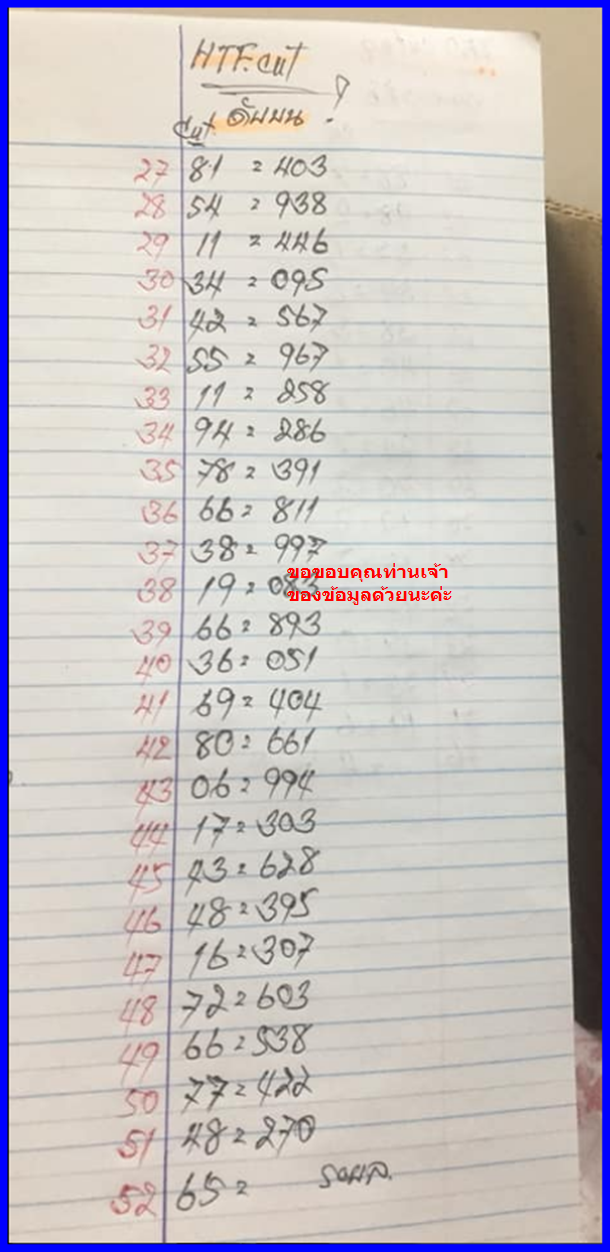 HTF.cut
Cut ดับบน !
27 81 = 403
28 54 = 938
29 11 = 446
30 34 = 095
31 42 = 567
32 55 = 967
33 11 = 258
34 94 = 286
35 78 = 391
36 66 = 811
37 38 = 997
ขอขอบคุณท่านเจ้า
38 19 = 083
ของข้อมูลด้วยนะค่ะ
39 66 = 893
40 36 = 051
41 69 = 404
42 80 = 661
43 06 = 994
44 17 = 303
45 43 = 628
46 48 = 395
47 16 = 307
48 72 = 603
49 66 = 538
50 77 = 422
51 48 = 270
52 65 = รอผล.